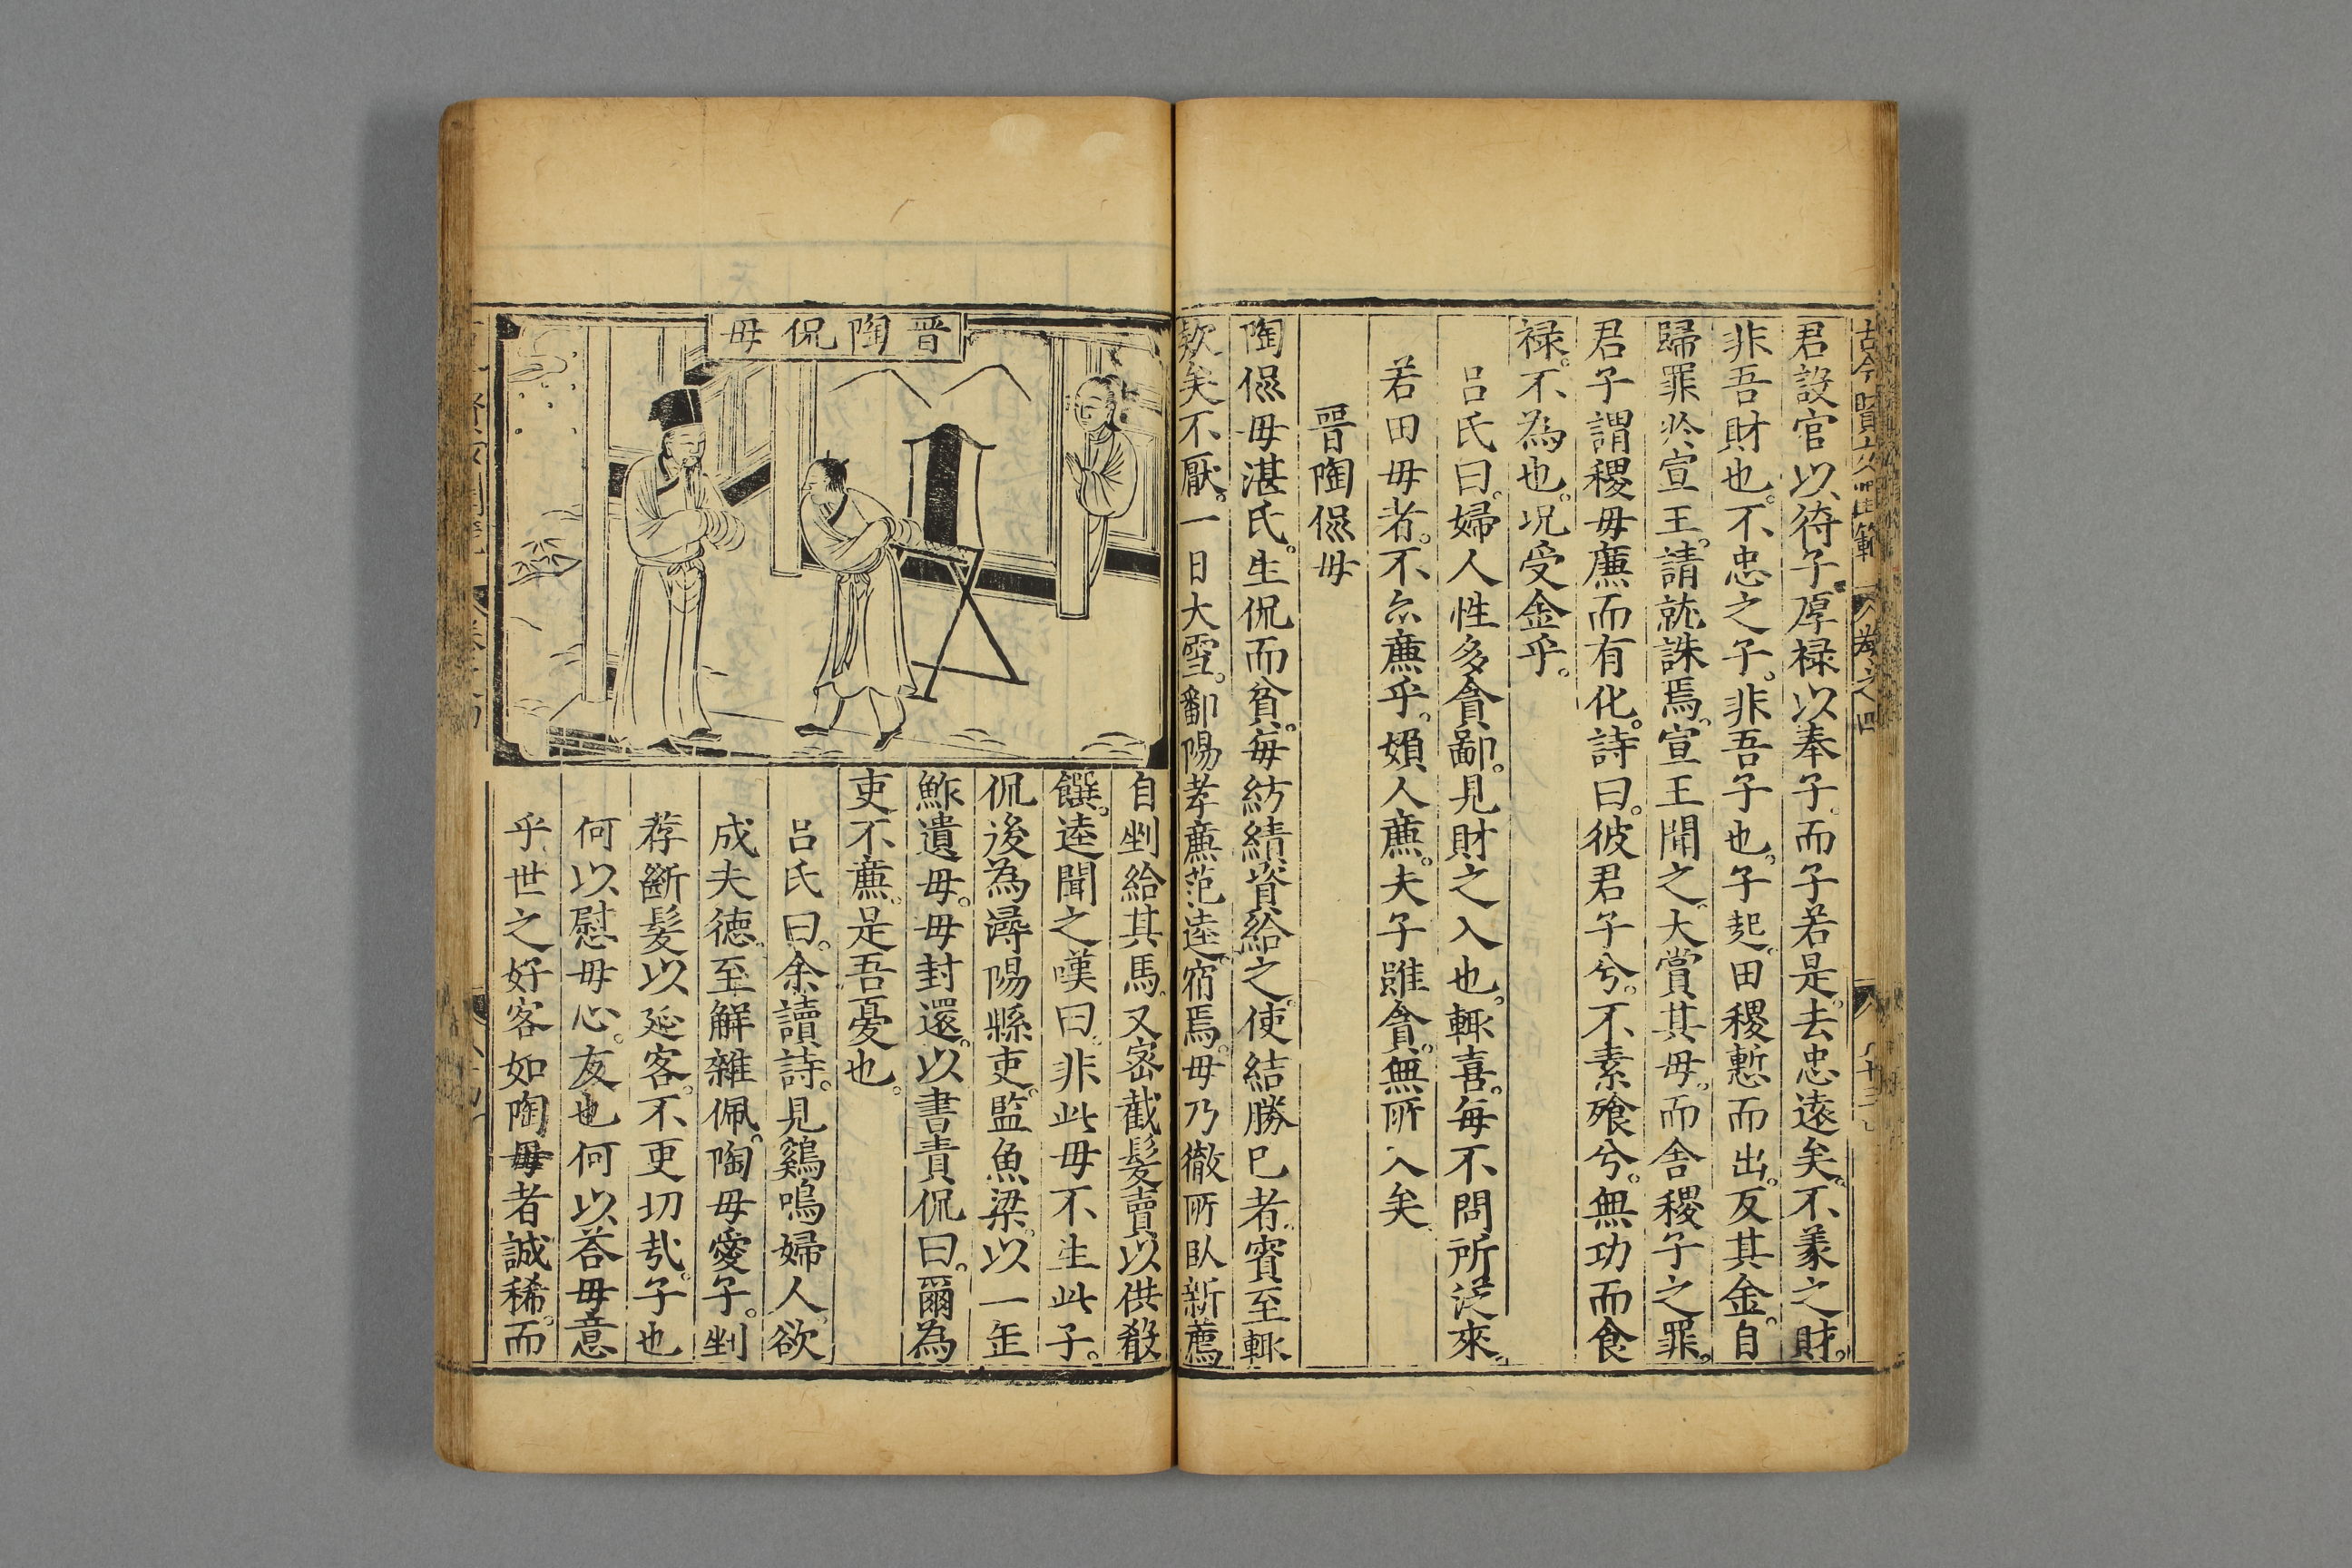 君設官以待子厚禄以奉子而子若是去忠遠矣不義之財
非吾財也不忠之子非吾子也子起田稷慙而出反其金自
歸罪於宣王請就誅焉宣王聞之大賞其母而舍稷子之罪
君子謂稷母廉而有化詩曰彼君子兮不素飱兮無功而食
禄不為也況受金乎
呂氏曰婦人性多貪鄙見財之入也輙喜每不問所從來
若田母者不亦廉乎婦人廉夫子雖貪無所入矣
晉陶侃母
陶侃母湛氏生侃而貧每紡績資給之使結勝己者賓至輙
款矣不厭一日大雪鄱陽孝廉范逵宿焉母乃徹所臥新薦
晉陶侃母
自剉給其馬又密截髮賣以供殽
饌逵聞之嘆曰非此母不生此子
侃後為潯陽縣吏監魚梁以一缶
鮓遺母母封還以書責侃曰爾為
吏不廉是吾憂也
呂氏曰余讀詩見鷄鳴婦人欲
成夫德至解雜佩陶母愛子剉
荐斷髮以延客不更切㢤子也
何以慰母心友也何以答母意
乎世之好客如陶母者誠稀而